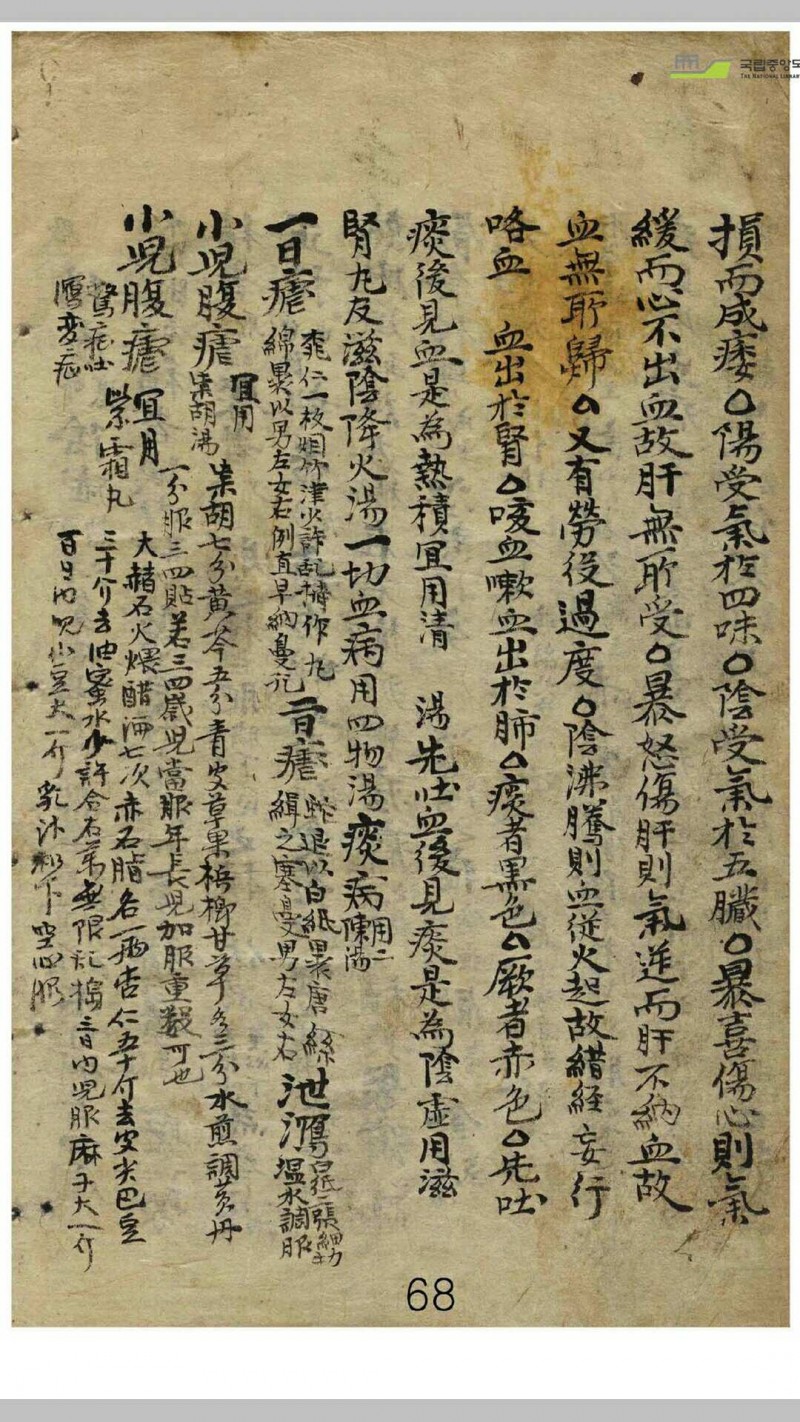 損而成痿○陽受氣於四味○陰受氣於五臟○暴喜傷心則氣
緩而心不出血故肝無所受○暴怒傷肝則氣逆而肝不納血故
血無所歸○又有勞役過度○陰沸騰則血從火起故錯經妄行
咯血 血出於腎○咳血嗽血出於肺○痰者黑色○厥者赤色○先吐
痰後見血是為熱積宜用清 湯先吐血後見痰是為陰虛用滋
腎丸及滋陰降火湯一切血病用四物湯痰病用二陳湯
一日瘧
仁一枚
竹
作丸
綿裹以男左女右例直早納
二日瘧
退以白紙裹唐絲
緝之塞
男左女右
泄瀉
白紙一張細切
溫水調服
小兒腹瘧宜用柴胡湯
柴胡七分黃芩五分青皮草果梹榔甘草各三分水煎調黃丹
一分服三四貼若三四歲兒當服年長兒加服重數可也
小兒腹瘧宜用紫霜丸
驚疳吐
變症
大赭石火煅醋洒七次赤石脂各一兩杏仁五十介去皮尖巴豆
三十介去油蜜水少許合右
無限亂搗三日內兒服麻子大一介
百日內兒小豆大一介乳汁和下空心服
국립중앙도
THE NATIONAL LIBRA
68